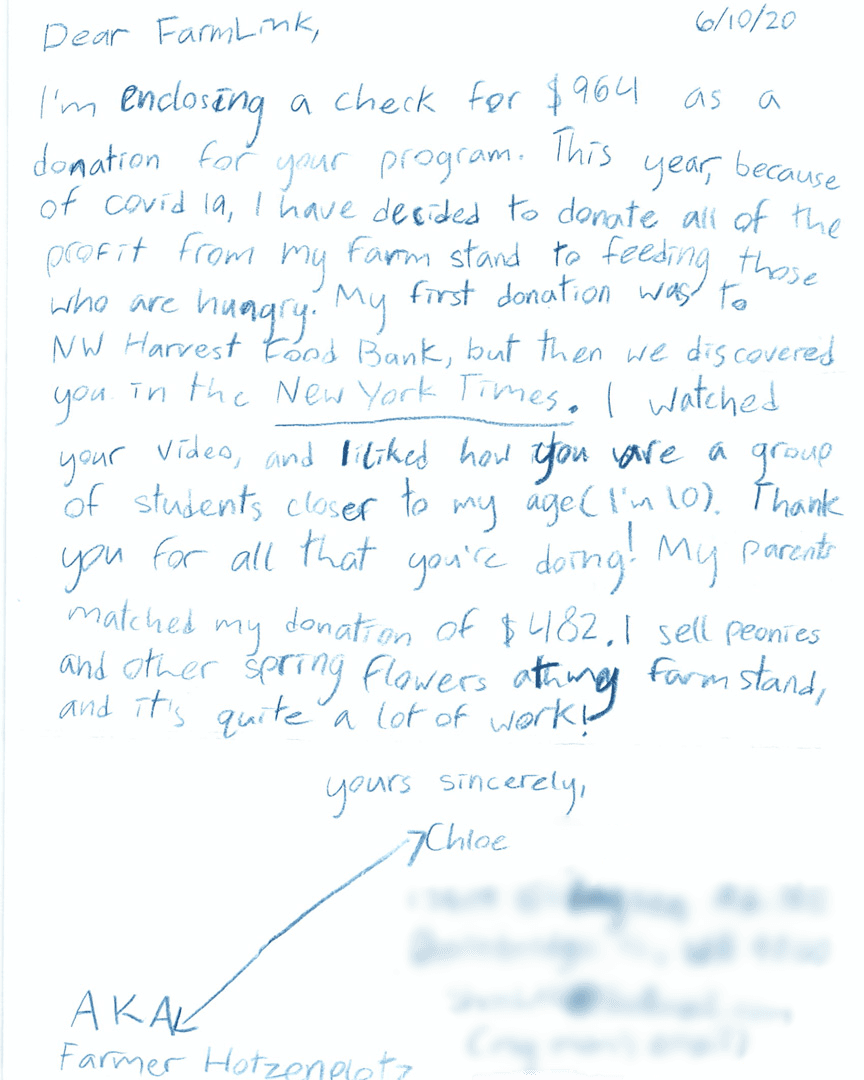 6/10/20
Dear FarmLink,
I'm enclosing a check for $964 as a
donation for your program. This year, because
of covid 19, I have decided to donate all of the
profit from my farm stand to feeding those
who are hungry. My first donation was to
NW Harvest Food Bank, but then we discovered
you in the New York Times. I watched
your video, and I liked how you are a group
of students closer to my age (I'm 10). Thank
you for all that you're doing! My parents
matched my donation of $482. I sell peonies
and other spring flowers at my farm stand,
and it's quite a lot of work!
yours sincerely,
Chloe
AKA
Farmer Hotzenplotz